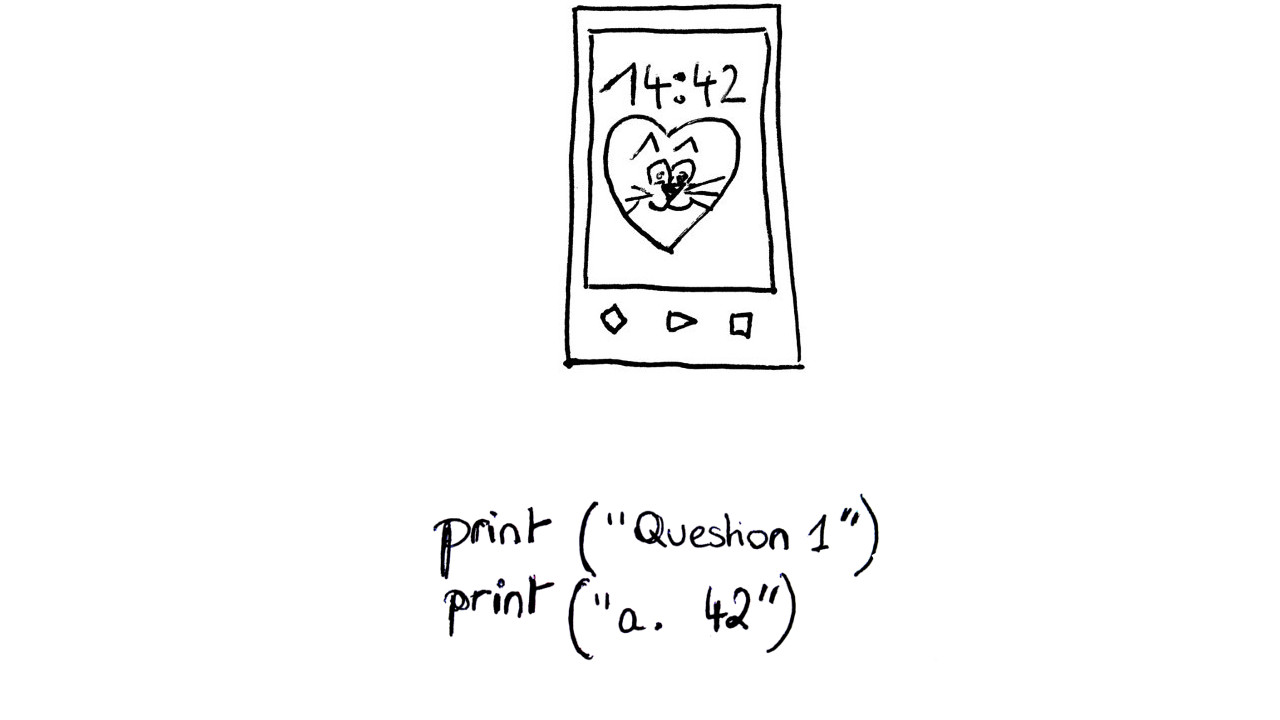 14:42
print ("Question 1")
print ("a. 42")